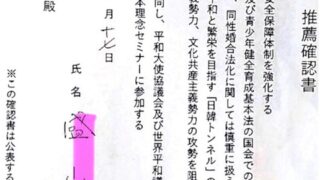 推薦確認書
安全保障体制を強化する
及び青少年健全育成基本法の国会での
、同性婚合法化に関しては慎重に扱
平和と繁栄を目指す「日韓トンネル」の
義勢力、文化共産主義勢力の攻勢を阻
同し、平和大使協議会及び世界平和議
本理念セミナーに参加する
月十七日
氏名 盛山
殿
※この確認書は公表する